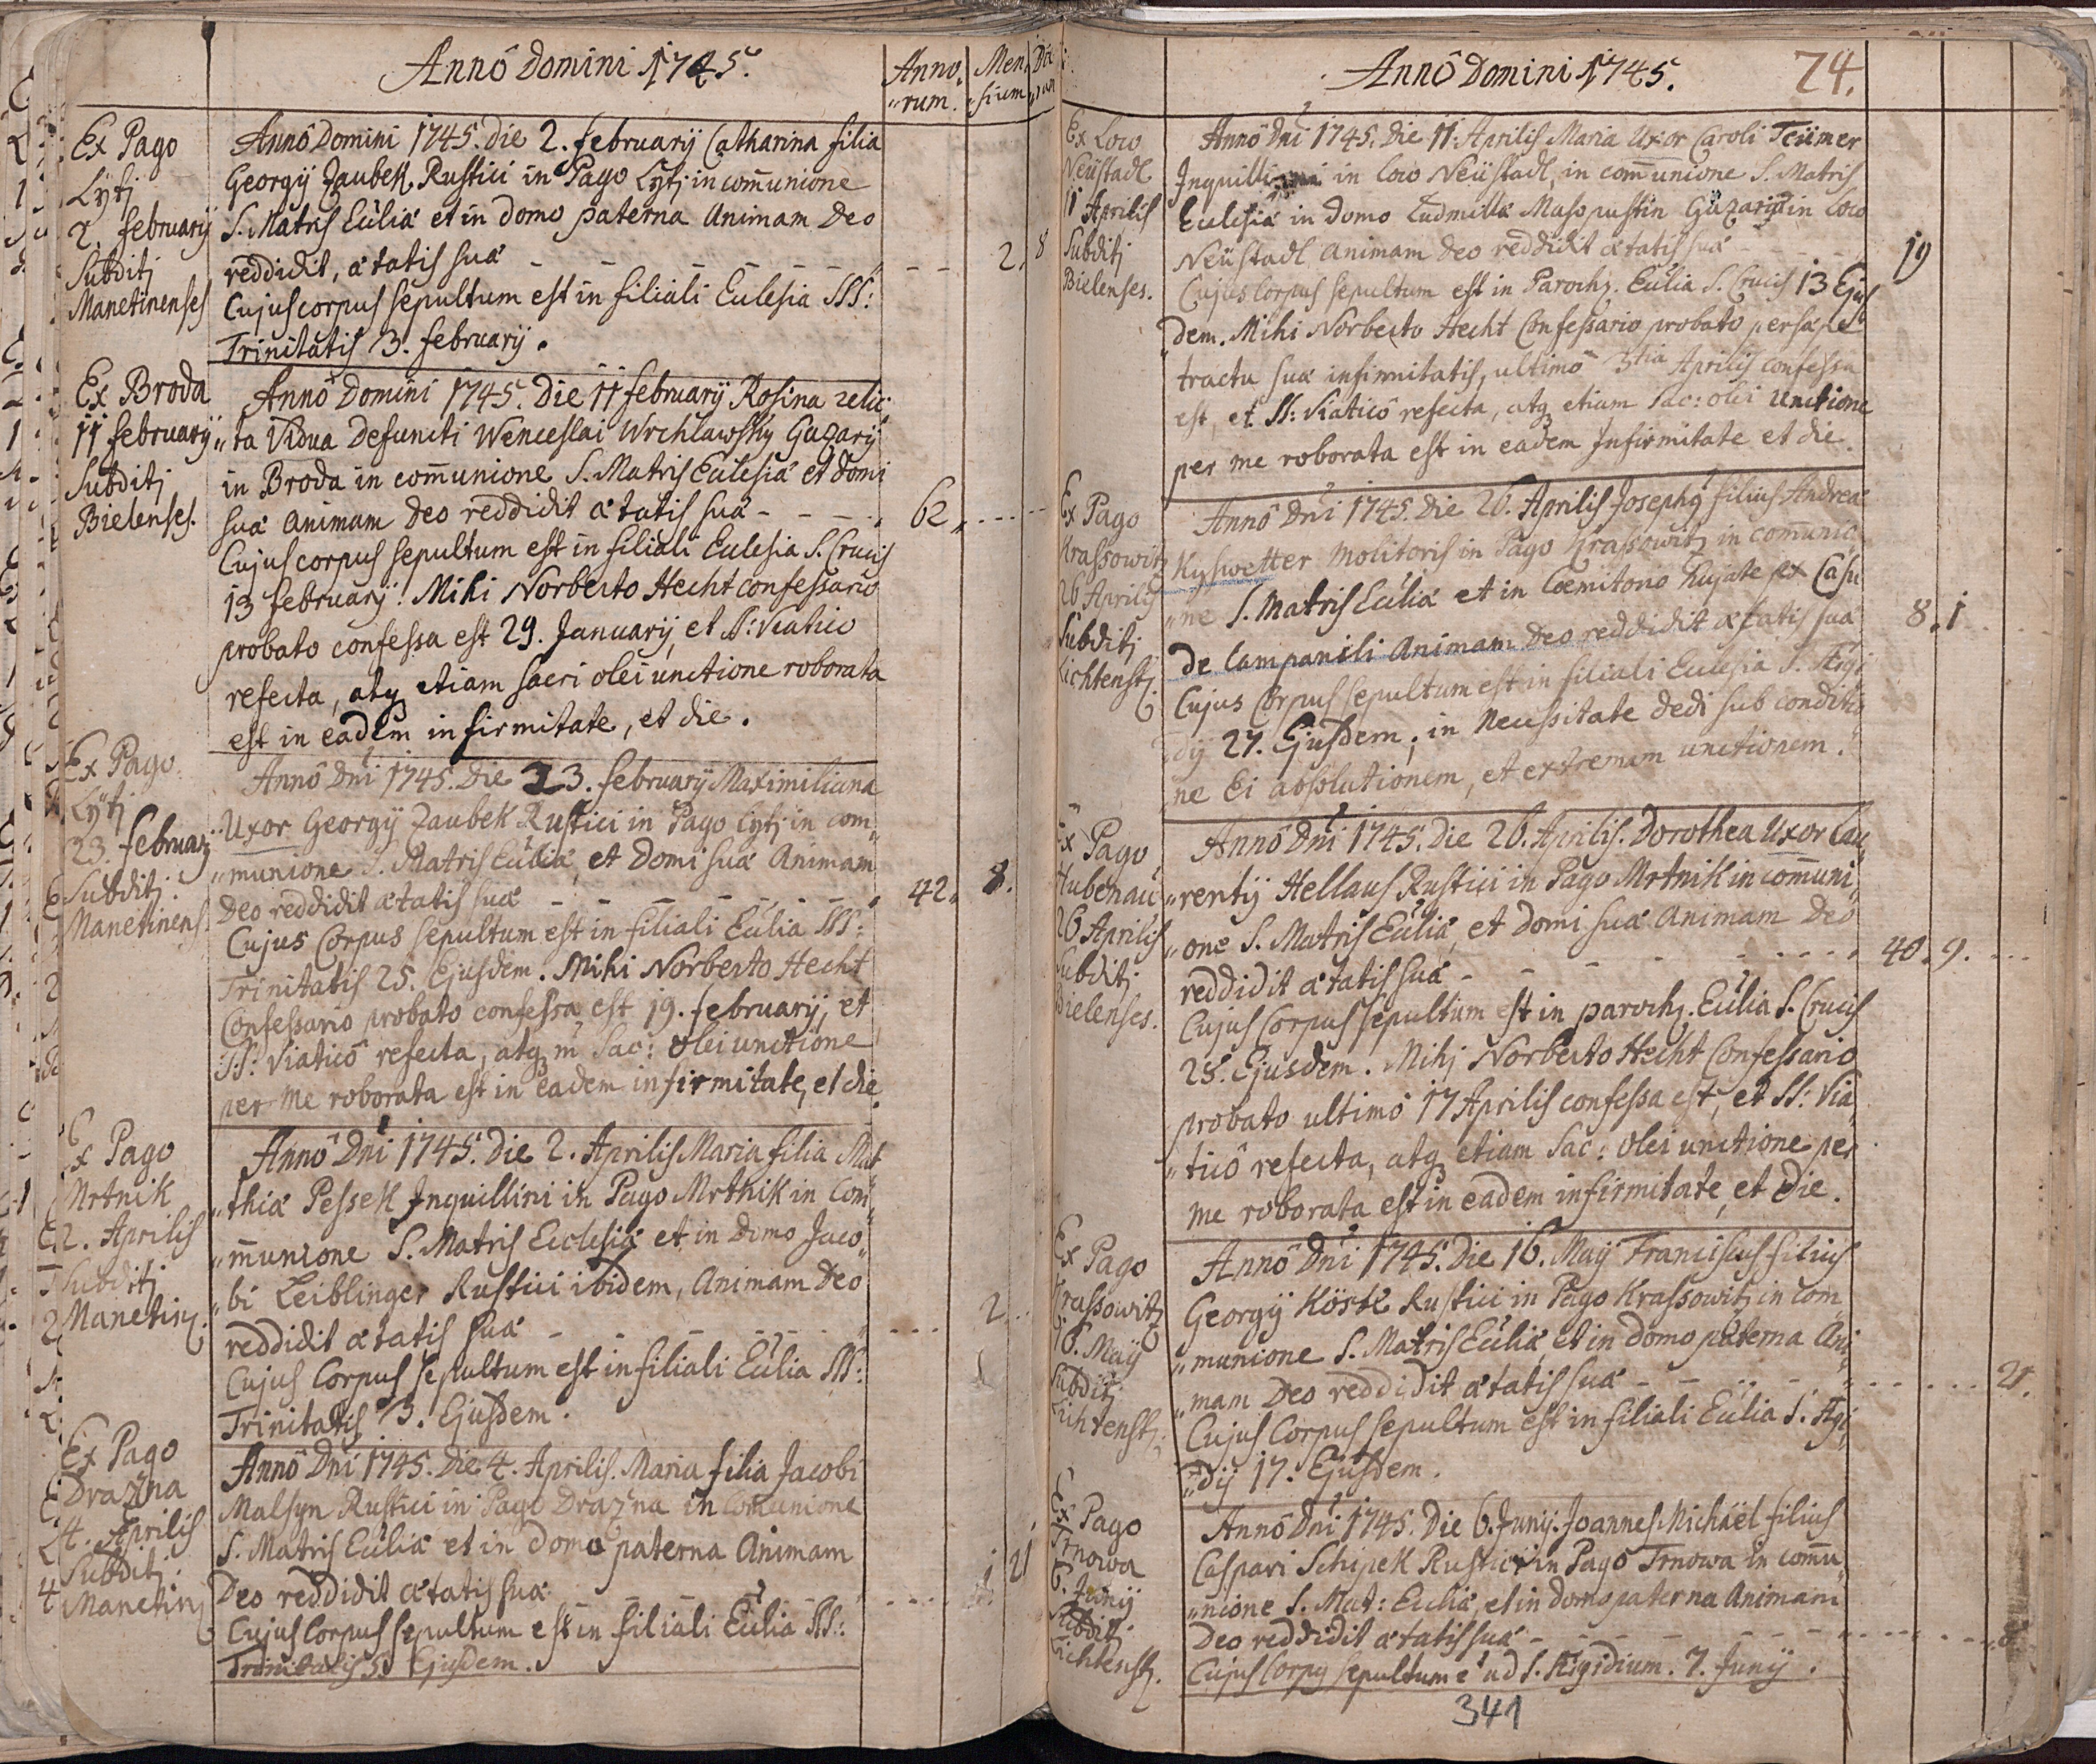 Annô Domini 1745.
Anno,
„rum.
Men,
„sium
Ex Pago
Lytj
2. februarij
Subditj
Manetinenses
Annô Domini 1745. Die 2. februarij Catharina filia
Georgij Zaubek Rustici in Pago Lytj in com̄unione
S. Matris Ecclesiæ et in domo paterna Animam Deo
reddidit, ætatis suæ
2. 8
Cujus corpus sepultum est in filiali Ecclesia SSS:
Trinitatis 3. februarij.
Ex Broda
11 februarij
Subditj
Bielenses.
Annô Domini 1745. Die 11 februarij Rosina relic
„ta Vidua Defuncti Wenceslai Wrchlawsky Gazarij
in Broda in com̄unione S. Matris Ecclesiæ et domi
suæ Animam Deo reddidit ætatis suæ
62
Cujus corpus sepultum est in filiali Ecclesia S. Crucis
13 februarij. Mihi Norberto Hecht confessario
probato confessa est 29. Januarij, et SS: Viatico
refecta, atq etiam sacri olei unctione roborata
est in eadem infirmitate, et die.
Ex Pago
Lytj
23. februarij
Subditj
Manetinens.
Annô Dnı 1745. Die 23. februarij Maximiliana
Uxor Georgij Zaubek Rustici in Pago Lytj in com„
„munione S. Matris Ecclıa, et Domi suæ Animam
Deo reddidit ætatis suæ
42. 8.
Cujus Corpus sepultum est in filiali Ecclia SSS:
Trinitatis 25. Ejusdem. Mihi Norberto Hecht
Confessario probato confessa est 19. februarij, et
SS: Viaticô refecta, atq Sac: Olei unctione
per me roborata est in eadem infirmitate, et die.
Ex Pago
Mrtnik
2. Aprilis
Subditj
Manetin.
Annô Dnı 1745. Die 2. Aprilis Maria filia Mat
„thiæ Pessek Inquillini in Pago Mrtnik in com„
„m̄unione S. Matris Ecclesiæ et in Domo Jaco„
„bi Leiblinger Rustici ibidem, Animam Deo
reddidit ætatis suæ
2
Cujus Corpus sepultum est in filiali Ecclia SSS:
Trinitatis 3. Ejusdem.
Ex Pago
Drazna
4. Aprilis
Subditj
Manetin
Annô Dnı 1745. Die 4. Aprilis. Maria filia Jacobi
Malsyn Rustici in Pago Drazna in Com̄unione
S. Matris Ecclıæ et in Domo paterna Animam
Deo reddidit ætatis suæ
1. 21
Cujus Corpus sepultum est in filiali Ecclıa SSS:
Trinitatis 5 Ejusdem.
Annô Domini 1745.
74.
Ex Loco
Neüstadl
11 Aprilis
Subditj
Bielenses.
Annô Dnı 1745. Die 11. Aprilis Maria Uxor Caroli Teümer
in loco Neüstadl, in com̄unione S. Matris
Ecclesiæ in Domo Ludmillæ Masopustin Gazarij in Loco
Neüstadl Animam Deo reddidit ætatis suæ
19
Cujus Corpus sepultum est in Paroch. Ecclıa S. Crucis 13 Ejus
„dem. Mihi Norberto Hecht Confessario probato persæpe
tractu suæ infirmitatis, ultimô 3tia Aprilis confessa
est, et SS: Viaticô refecta, atq etiam Sac: olei unctione
per me roborata est in eadem Infirmitate et die.
Ex Pago
Krassowitz
26 Aprilis
Subditj
Lichtenst.
Annô Dnı 1745. Die 26. Aprilis Josephg filius Andreæ
Kyswetter Molitoris in Pago Krassowitz in com̄unio
„ne S. Matris Ecclıæ et in Cœmitorio hujate ex Casu
de Campanili Animam Deo reddidit ætatis suæ
8. 1
Cujus Corpus sepultum est in filiali Ecclesia S. Ægi
„dij 27. Ejusdem; in Necessitate dedi sub conditio
„ne Ei absolutionem, et extremam unctionem.
Ex Pago
Hubenau
26 Aprilis
Subditj
Bielenses.
Annô Dnı 1745. Die 26. Aprilis. Dorothea Uxor Lau„
„rentij Hellaus Rustici in Pago Mrtnik in com̄uni„
„one S. Matris Ecclıæ, et Domi suæ Animam Deo
reddidit ætatis suæ
40. 9.
Cujus Corpus sepultum est in paroch. Ecclıa S. Crucis
28. Ejusdem. Mihj Norberto Hecht Confessario
probato ultimô 17 Aprilis confessa est, et SS: Via„
„ticô refecta, atq etiam Sac: Olei unctione per
me roborata est in eadem infirmitate, et Die.
Ex Pago
Krassowitz
16. Maij
Subditj
Lichtenst.
Annô Dnı 1745. Die 16. Maij Franciscus filius
Georgij Köstl Rustici in Pago Krassowitz in com„
„munione S. Matris Ecclıæ, et in domo paterna Ani„
„mam Deo reddidit ætatis suæ
21.
Cujus Corpus sepultum est in filiali Ecclıa S. Ægi„
„dij 17. Ejusdem.
Ex Pago
Trnowa
6. Junij
Subditj
Lichtenst.
Annô Dnı 1745. Die 6. Junij. Joannes Michaël filius
Caspari Schipek Rustici in Pago Trnowa in com̄u„
„nione S. Mat: Ecclıæ, et in domo paterna Animam
Deo reddidit ætatis suæ
Cujus Corpg sepultum e' ad S. Ægidium. 7. Junij.
341